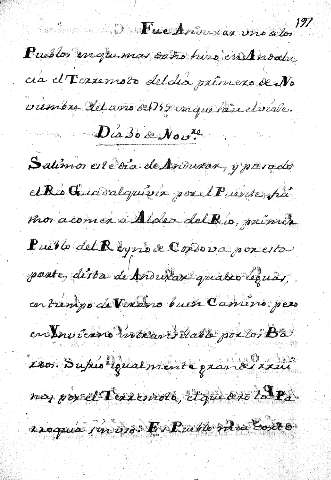 191
Fue Anduxar uno de los
Pueblos en que mas daño hizo en Andalu-
cia el Terremoto del dia primero de No-
viembre del año de 1755 en que
Dia 30 de Nov.re
Salimos este dia de Anduxar, y pasado
el Rio Guadalquivir por el Puente, fui-
mos a comer à Aldea del Rio, primer
Pueblo del Reyno de Cordova por esta
parte, dista de Anduxar quatro leguas,
en tiempo de Verano buen Camino, pero
en Ynvierno intransitable por los Ba-
rros. Sufrio igualmente grandes rrui-
nas por el Terremoto, el quedro la Pa-
rroquia sin uso. Es Pueblo mui corto